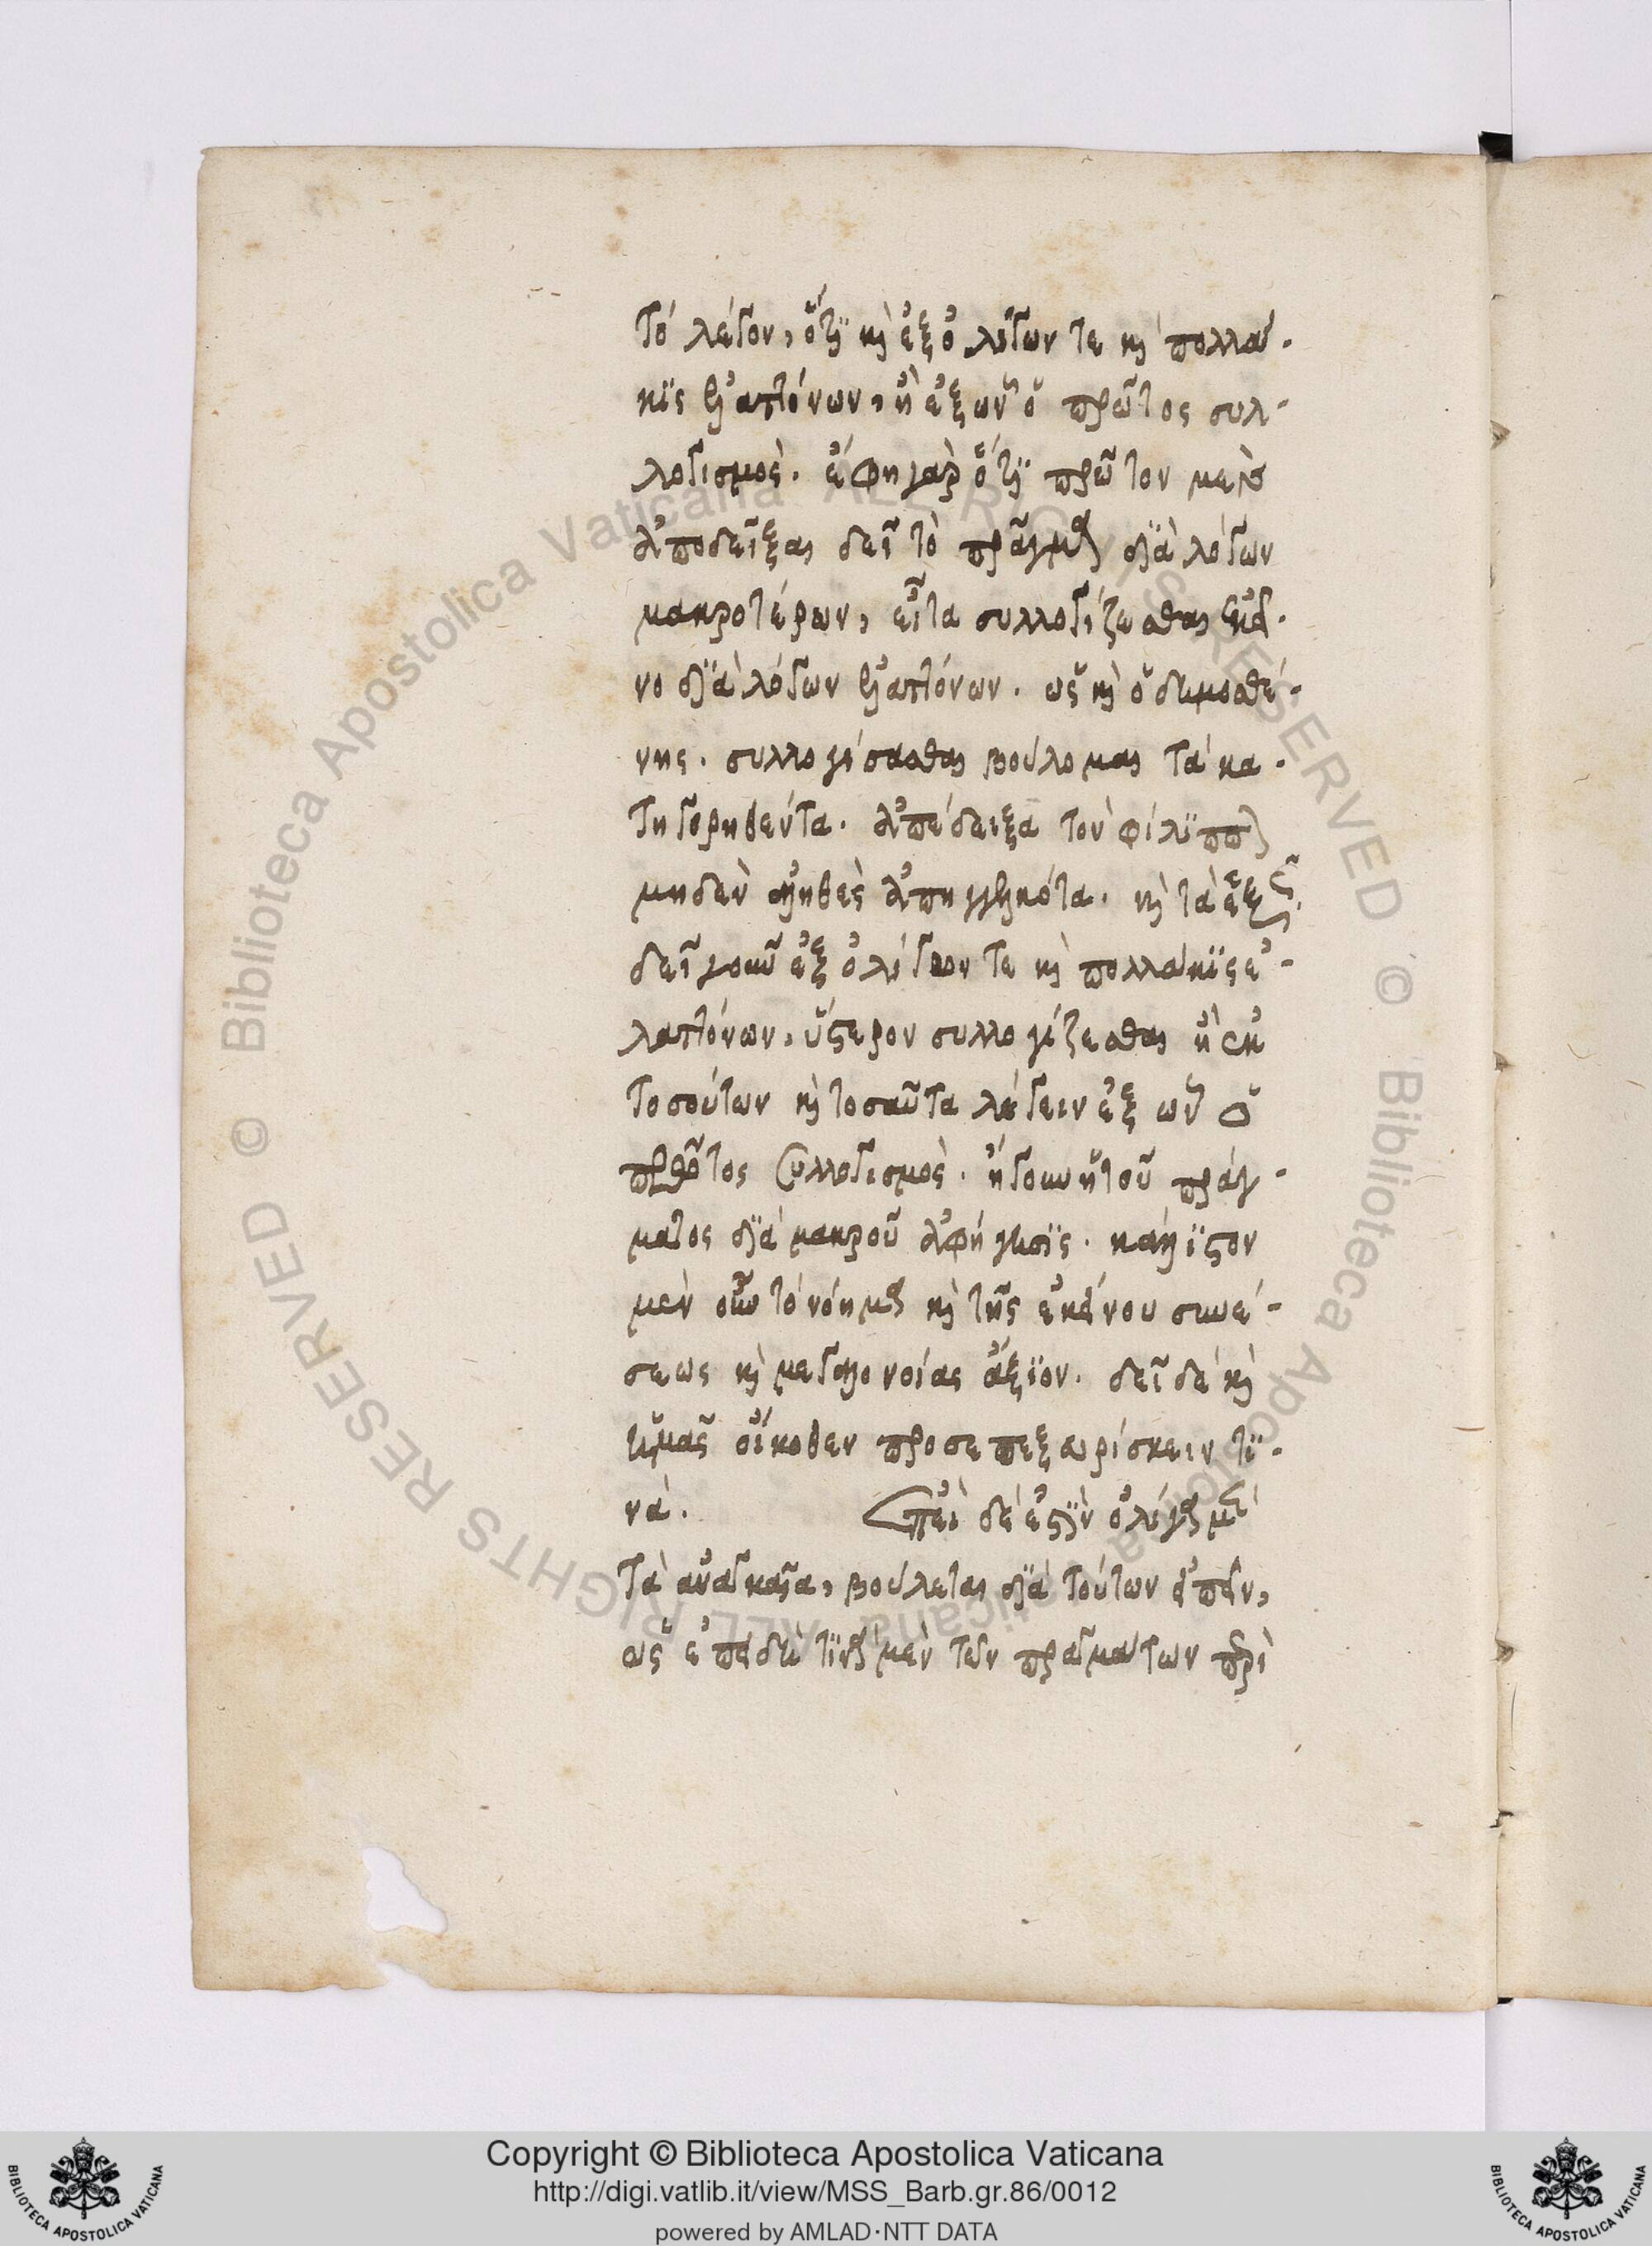 τὸ λέγον, ὅτι καὶ ἐξ ὀλίγων τε καὶ πολλά-
κις ἐλαττόνων, ἢ ἐξ ὧν ὁ πρῶτος συλ-
λογισμός. ἔφη γὰρ ὅτι πρῶτον μὲν
ἀποδεῖξαι δεῖ τὸ πρᾶγμα διὰ λόγων
μακροτέρων, εἶτα συλλογίζεσθαι ἐκεῖ-
νο διὰ λόγων ἐλαττόνων. ὡς καὶ ὁ δημοσθέ-
νης. συλλογίσασθαι βούλομαι τὰ κα-
τηγορηθέντα. ἀπέδειξα τὸν φίλιππον
μηδὲν ἀληθὲς ἀπηγγελκότα. καὶ τὰ ἑξῆς.
δεῖ γοῦν ἐξ ὀλίγων τε καὶ πολλάκις ἐ-
λαττόνων, ὕστερον συλλογίζεσθαι ἢ ἐκ
τοσούτων καὶ τοσαῦτα λέγειν ἐξ ὧν ὁ
πρῶτος συλλογισμός. ἤγουν ἡ τοῦ πράγ-
ματος διὰ μακροῦ ἀφήγησις. κάλλιστον
μὲν οὖν τὸ νόημα καὶ τῆς ἐκείνου συνέ-
σεως καὶ μεγαλονοίας ἄξιον. δεῖ δὲ καὶ
ἡμᾶς οἴκοθεν προσεπεξευρίσκειν τι-
νά. Ἐπεὶ δέ ἐστιν ὀλίγα
τὰ ἀναγκαῖα, βούλεται διὰ τούτων εἰπεῖν,
ὡς ἐπειδὴ τινὰ μὲν τῶν πραγμάτων περὶ
Copyright © Biblioteca Apostolica Vaticana
http://digi.vatlib.it/view/MSS_Barb.gr.86/0012
powered by AMLAD·NTT DATA
BIBLIOTECA APOSTOLICA VATICANA
BIBLIOTECA APOSTOLICA VATICANA
© Biblioteca Apostolica Vaticana ALL RIGHTS RESERVED © Biblioteca Apostolica Vaticana ALL RIGHTS RESERVED